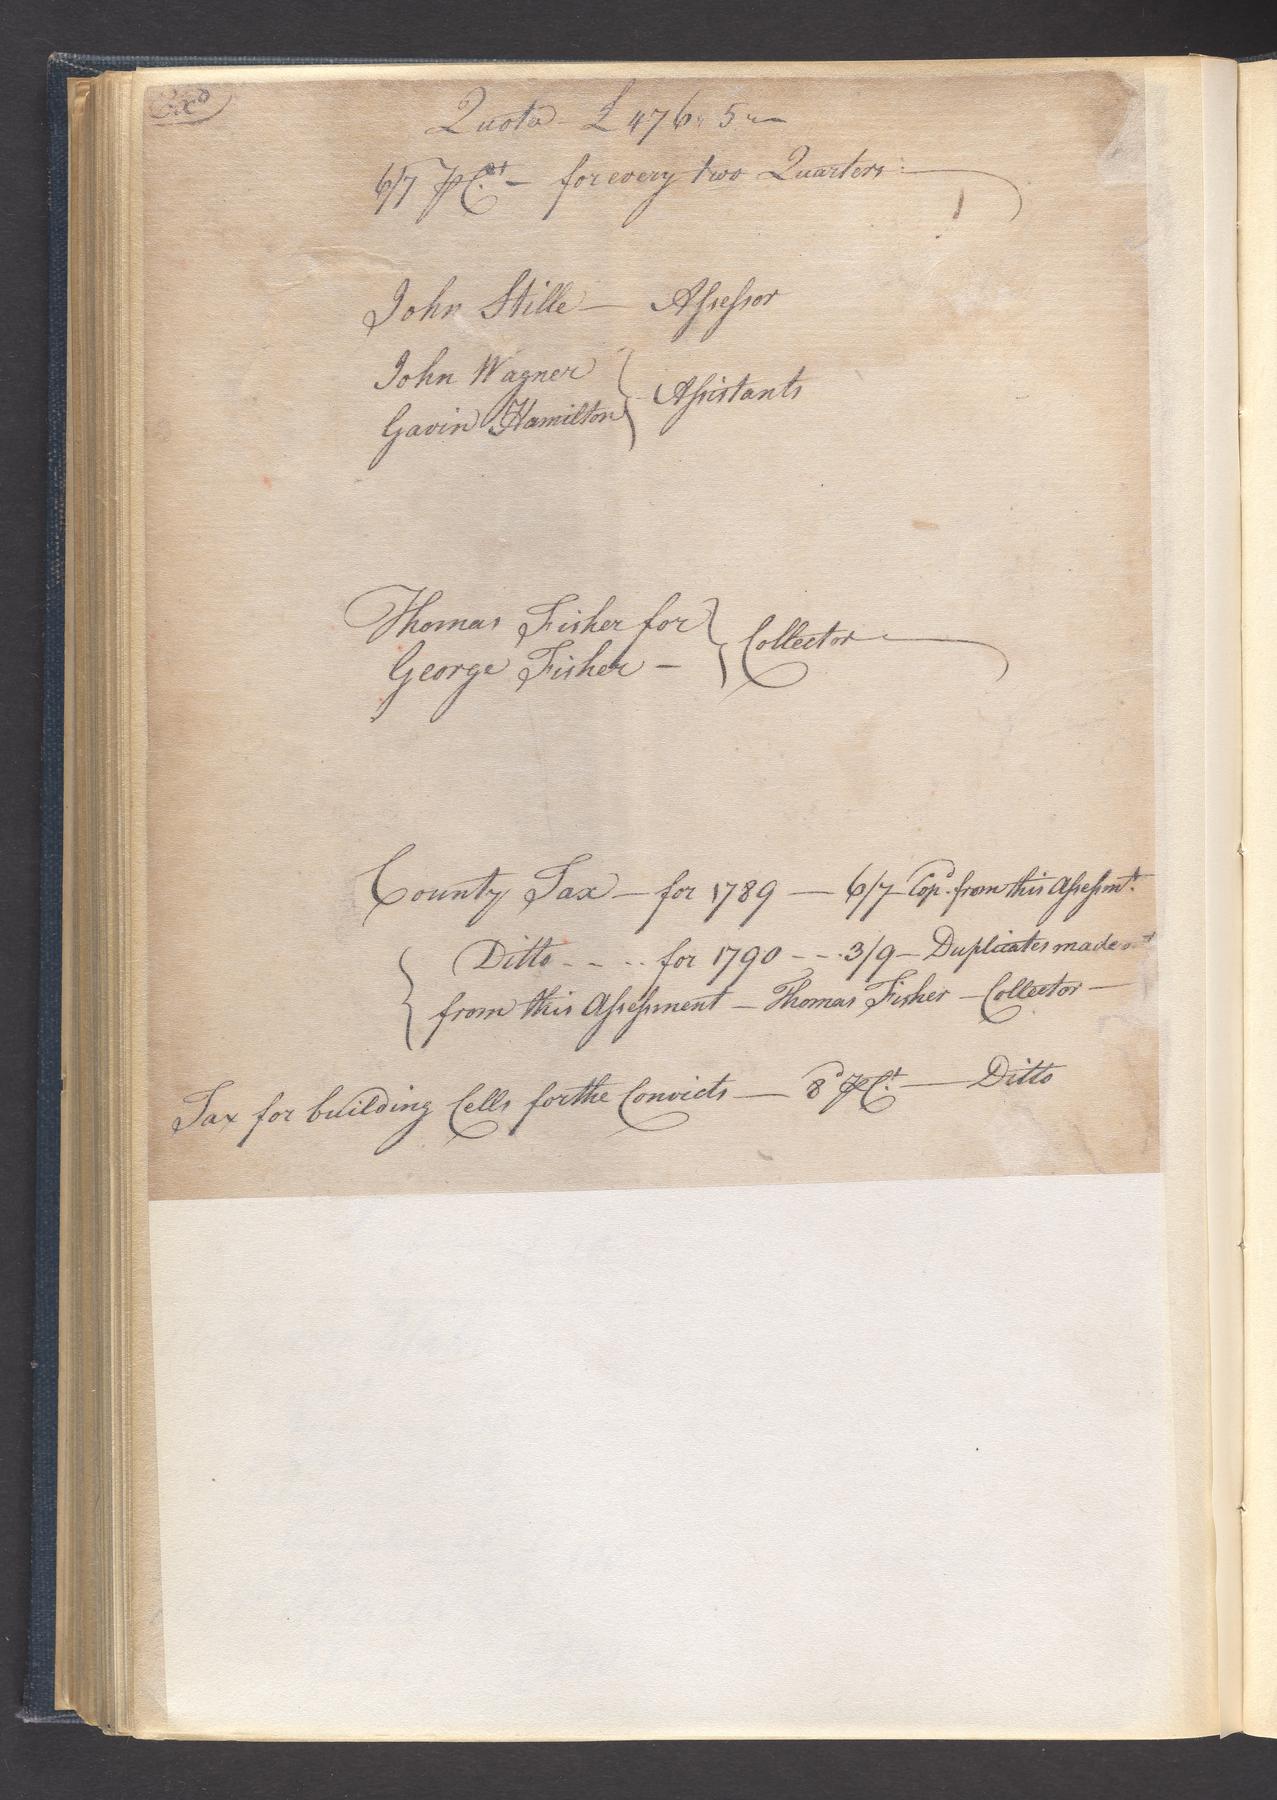 Exd
Quota - £ 476 " 5 " —
6/7 ⅌ Ct — for every two Quarters
John Stille — Assessor
John Wagner
Gavin Hamilton } Assistants
Thomas Fisher for
George Fisher — } Collector
County Tax — for 1789 — 6/7 Copd from this Assessmt.
Ditto - - - for 1790 - - - 3/9 — Duplicates made out
from this Assessment — Thomas Fisher — Collector —
Tax for building Cells for the Convicts — 8d ⅌ Ct. — Ditto